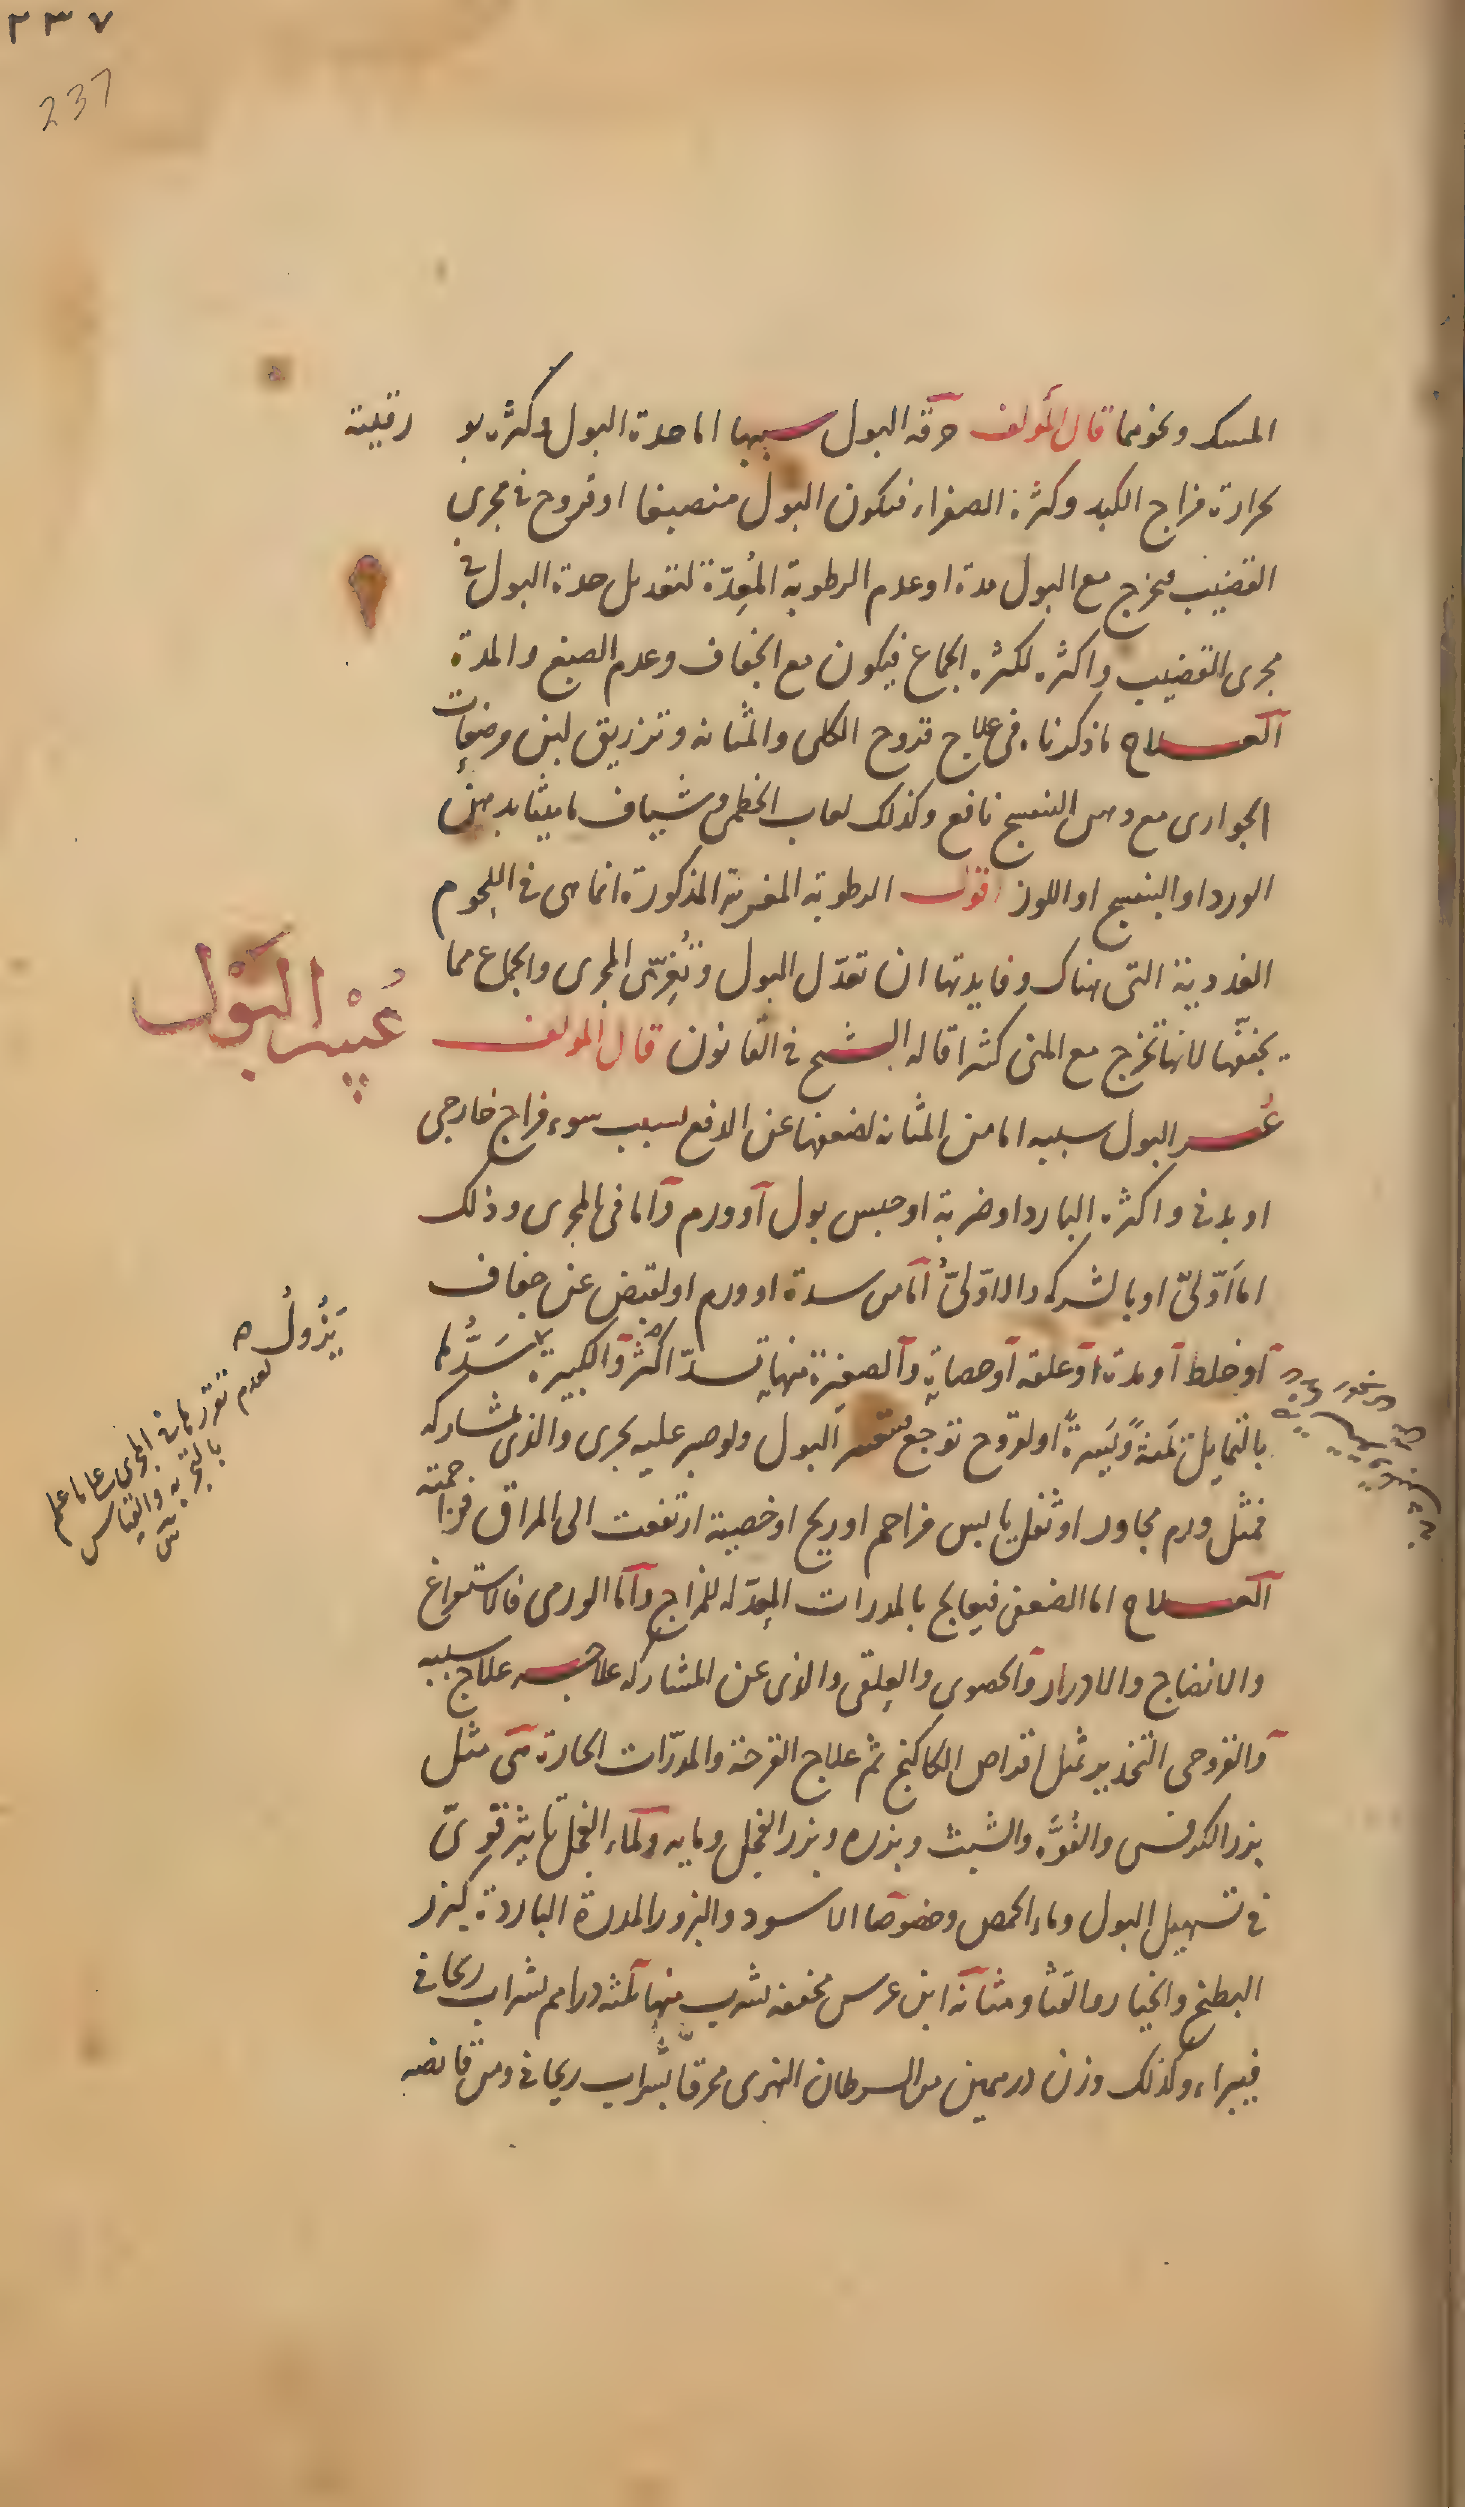 ٢٣٧
237
المسك ونحوهما قال المؤلف حرقة البول سببها اما حدة البول وكثرة بو رقيته
لحرارة مزاج الكبد وكثرة الصفراء فيكون البول منصبغا او قروح فى مجرى
القضيب فيخرج مع البول مدة او عدم الرطوبة المُعِدّة لتعديل حدة البول فى
مجرى القضيب واكثره لكثرة الجماع فيكون مع الجفاف وعدم الصبغ والمدة
العلاج ما ذكرناه فى علاج قروح الكلى والمثانه وتزريق لبن مرضعات
الجوارى مع دهن البنفسج نافع وكذلك لعاب الخطمى وشياف ماميثا بدهن
الورد او البنفسج او اللوز اقول الرطوبة المغرية المذكورة انما هى فى اللحوم
الغددية التى هناك وفايدتها ان تعدّل البول وتُغرّى المجرى والجماع مما
يجففها لانها تخرج مع المنى كثيرا قاله الشيخ فى القانون قال المولف
عُسر البَوْل
عُسر البول سببه اما من المثانه لضعفها عن الدفع لسبب سوء مزاج خارجى
او بدنى واكثره البارد او ضربة او حبس بول او ورم واما فى المجرى وذلك
اما اَوّلىّ او بالشركه والاوّلىُّ اما من سدة او ورم او لقبض عن جفاف
او خلط او مدة او علقه او حصاةٍ والصغيرة منها تسدّ اكثر والكبيرة سَدُّها
يَزُولُ
لعدم تقررها فى المجرى على ما علم
بالتجربه والقياس
بالتمايل يَمنةً ويَسرةً او لقروح توجع فتعسر البول ولو صبر عليه يجرى والذى لمشاركه
فمثل ورم مجاور او ثفل يابس مزاحم او ريح او خصية ارتفعت الى المراق فزاحمته
العلاج اما الضعفى فيعالج بالمدرات المعدّله للمزاج واما الورمى فالاستفراغ
والانضاج والادرار والحصوى والعلقى والذى عن المشاركه علاجه علاج سببه
والقروحى التخدير بمثل اقراص الكاكنج ثم علاج القرحة والمدرّات الحارة هى مثل
بزر الكرفس والفُوَّه والشبث وبزره وبزر الفجل ومايه ولماء الفجل تاثير قوىّ
فى تسهيل البول وماء الحمص وخصوصا الاسود والبزور المدرة الباردة كبزر
البطيخ والخيار والقثا ومثانة ابن عرس مجففه يشرب منها ثلثه دراهم بشراب ريحانى
فيبراء وكذلك وزن درهمين من السرطان النهرى محرقا بشراب ريحانى ومن قانصه